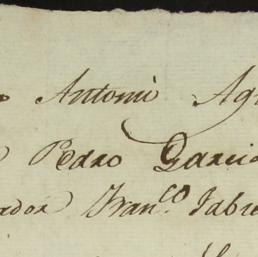 o Antoni Ag
Pedro Garcia
ador Fran.co Fabre